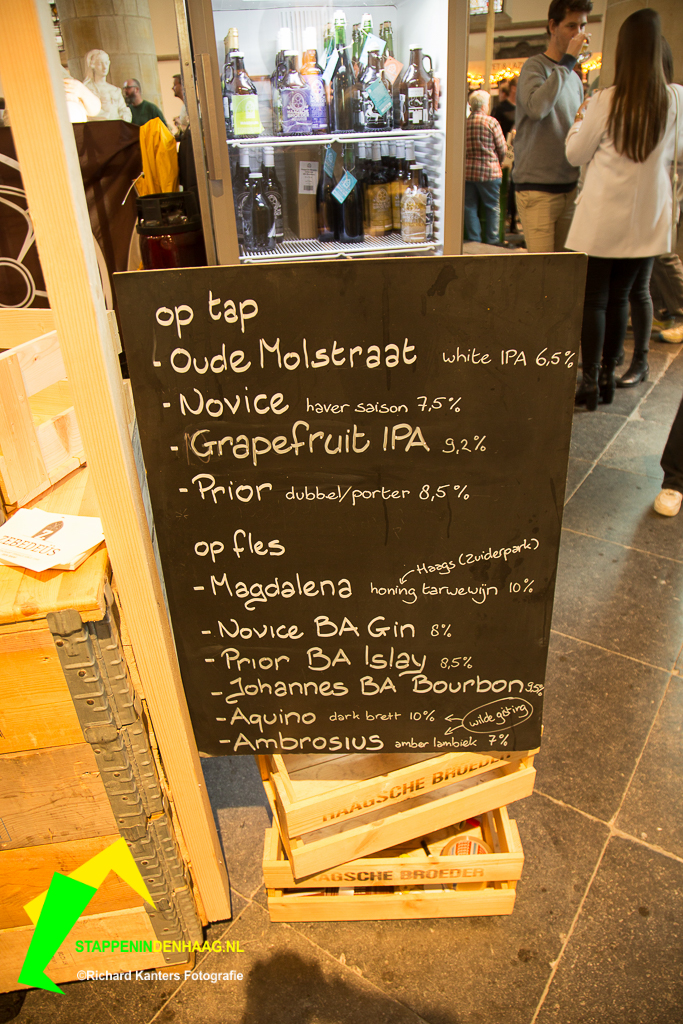 op tap
- Oude Molstraat white IPA 6,5%
- Novice haver saison 7,5%
- Grapefruit IPA 9,2%
- Prior dubbel/porter 8,5%
op fles
Haags (Zuiderpark)
- Magdalena honing tarwewijn 10%
- Novice BA Gin 8%
- Prior BA Islay 8,5%
- Johannes BA Bourbon 9,5%
- Aquino dark brett 10% wilde gisting
- Ambrosius amber lambiek 7%
HAAGSCHE BROEDER
HAAGSCHE BROEDER
ZEBEDEUS
STAPPENINDENHAAG.NL
©Richard Kanters Fotografie